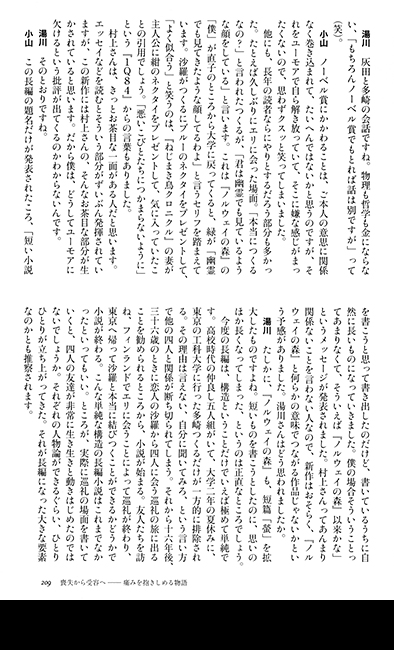 湯川　灰田と多崎の会話ですね。物理も哲学も金にならな
い、「もちろんノーベル賞でもとれば話は別ですが」って
(笑)。
小山　ノーベル賞にかかわることは、ご本人の意思に関係
なく巻き込まれて、たいへんではないかと思うのですが、そ
れをユーモアで自ら解き放っていて、そこに嫌な感じがまっ
たくないので、思わずクスッと笑ってしまいました。
　他にも、長年の読者ならにやりとするだろう部分も多かっ
た。たとえば久しぶりにエリに会った場面。「本当につくる
なの？」と言われたつくるが、「君は幽霊でも見ているよう
な顔をしている」と言います。これは『ノルウェイの森』の
「僕」が直子のところから大学に戻ってくると、緑が「幽霊
でも見てきたような顔してるわよ」と言うセリフを踏まえて
います。沙羅がつくるにブルーのネクタイをプレゼントして、
「よく似合う」と笑うのは、『ねじまき鳥クロニクル』の妻が
主人公に紺のネクタイをプレゼントして、気に入っていたこ
との引用でしょう。「悪いこびとたちにつかまらないように」
という『1Q84』からの言葉もありました。
　村上さんは、きっとお茶目な一面がある人だと思います。
エッセイなどを読むとそういう部分がずいぶん発揮されてい
ますが、この新作には村上さんの、そんなお茶目な部分が生
かされていると思います。だから僕は、どうしてユーモアに
欠けるという批評が出てくるのかわからないんです。
湯川　そのとおりですね。
小山　この長編の題名だけが発表されたころ、「短い小説
を書こうと思って書き出したのだけど、書いているうちに自
然に長いものになっていきました。僕の場合そういうことっ
てあまりなくて、そういえば『ノルウェイの森』以来かな」
というメッセージが発表されました。村上さんってあんまり
関係ないことを言わない人なので、新作はおそらく、『ノル
ウェイの森』と何らかの意味でつながる作品じゃないかとい
う予感がありました。湯川さんはどう思われましたか。
湯川　たしかに、『ノルウェイの森』も、短篇「蛍」を拡
大したものですよね。短いものを書こうとしたのに、思いの
ほか長くなってしまった、というのは正直なところでしょう。
　今度の長編は、構造ということだけでいえば極めて単純で
す。高校時代の仲良し五人組がいて、大学二年の夏休みに、
東京の工科大学に行った多崎つくるだけが一方的に排除され
る。その理由は言えない、自分に聞いてみろ、という言い方
で他の四人と関係が断ち切られてしまう。それから十六年後、
三十六歳のときに恋人の沙羅から四人に会う巡礼の旅に出る
ことを勧められるところから、小説が始まる。友人たちを訪
ね、フィンランドでエリに会うことによって巡礼が終わり、
東京へ帰って沙羅と本当に結びつくことができるかどうかで
小説が終わる。こんな単純な構造の長編小説はこれまでなか
ったといってもいい。ところが、実際に巡礼の場面を書いて
いくと、四人の友達が非常に生き生きと動きはじめたのでは
ないでしょうか。それぞれの人物論ができるぐらい、ひとり
ひとりが立ち上がってきた。それが長編になった大きな要素
なのかとも推察されます。
209　喪失から受容へ――痛みを抱きしめる物語